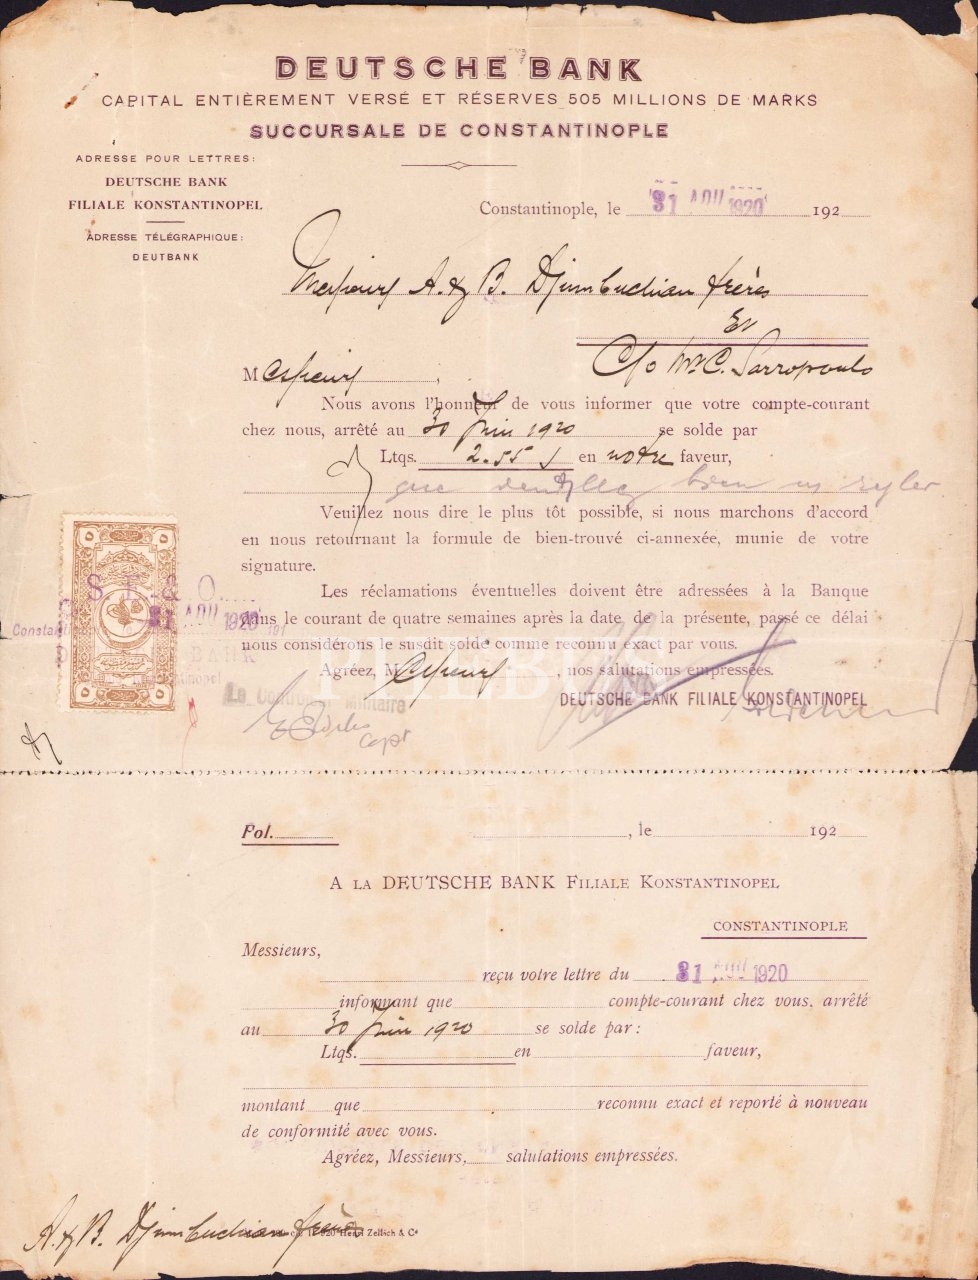 DEUTSCHE BANK
CAPITAL ENTIÈREMENT VERSÉ ET RÉSERVES 505 MILLIONS DE MARKS
SUCCURSALE DE CONSTANTINOPLE
ADRESSE POUR LETTRES:
DEUTSCHE BANK
FILIALE KONSTANTINOPEL
ADRESSE TÉLÉGRAPHIQUE:
DEUTBANK
Constantinople, le 31 AOU 1920 192
Messieurs A. & B. Djumbuchian frères
Ev
C/o Mr C. Sarropoulo
Messieurs,
Nous avons l'honneur de vous informer que votre compte-courant
chez nous, arrêté au 30 Juin 1920 se solde par
Ltqs. 2.55 en notre faveur,
que veuillez bien
Veuillez nous dire le plus tôt possible, si nous marchons d'accord
en nous retournant la formule de bien-trouvé ci-annexée, munie de votre
signature.
Les réclamations éventuelles doivent être adressées à la Banque
dans le courant de quatre semaines après la date de la présente, passé ce délai
nous considérons le susdit solde comme reconnu exact par vous.
Agréez, Messieurs, nos salutations empressées.
DEUTSCHE BANK FILIALE KONSTANTINOPEL
31 AOU 1920
Le Controleur Militaire
Capt
Fol. , le 192
A LA DEUTSCHE BANK FILIALE KONSTANTINOPEL
CONSTANTINOPLE
Messieurs,
reçu votre lettre du 31 AOU 1920
informant que compte-courant chez vous, arrêté
au 30 Juin 1920 se solde par:
Ltqs. en faveur,
montant que reconnu exact et reporté à nouveau
de conformité avec vous.
Agréez, Messieurs, salutations empressées.
A. & B. Djumbuchian frères
1920 Henri Zellich & Co